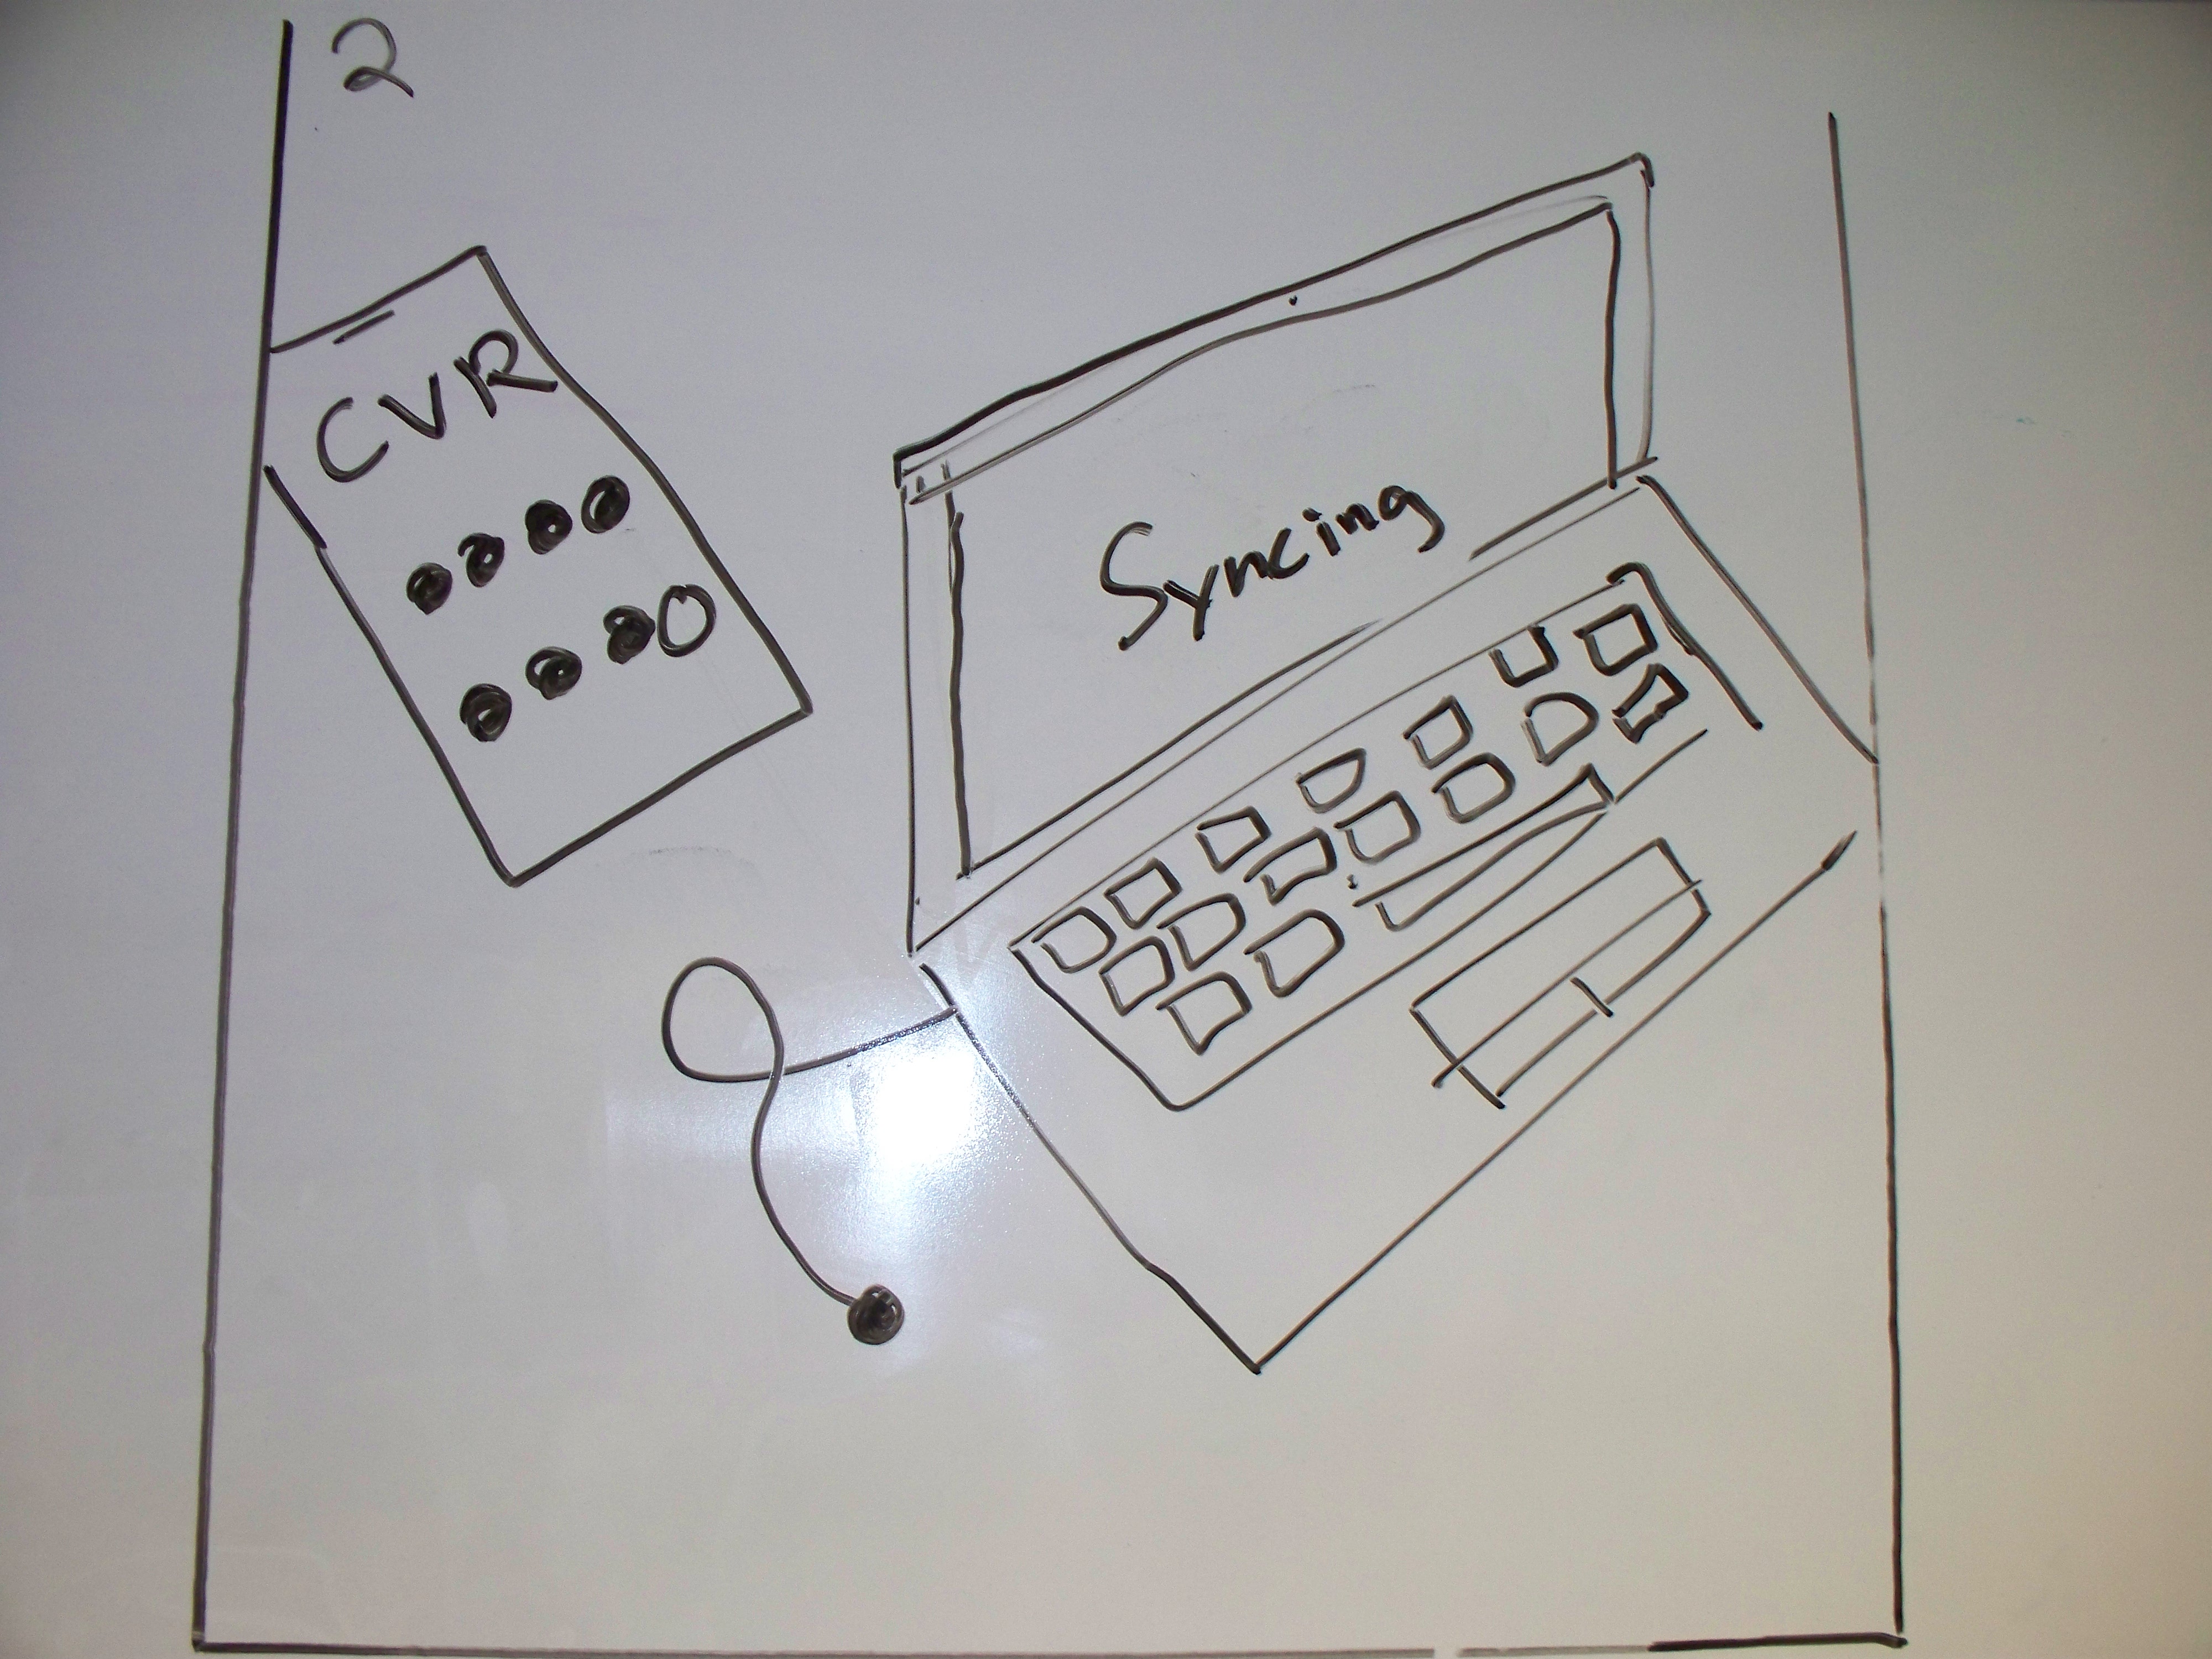 2
CVR
Syncing